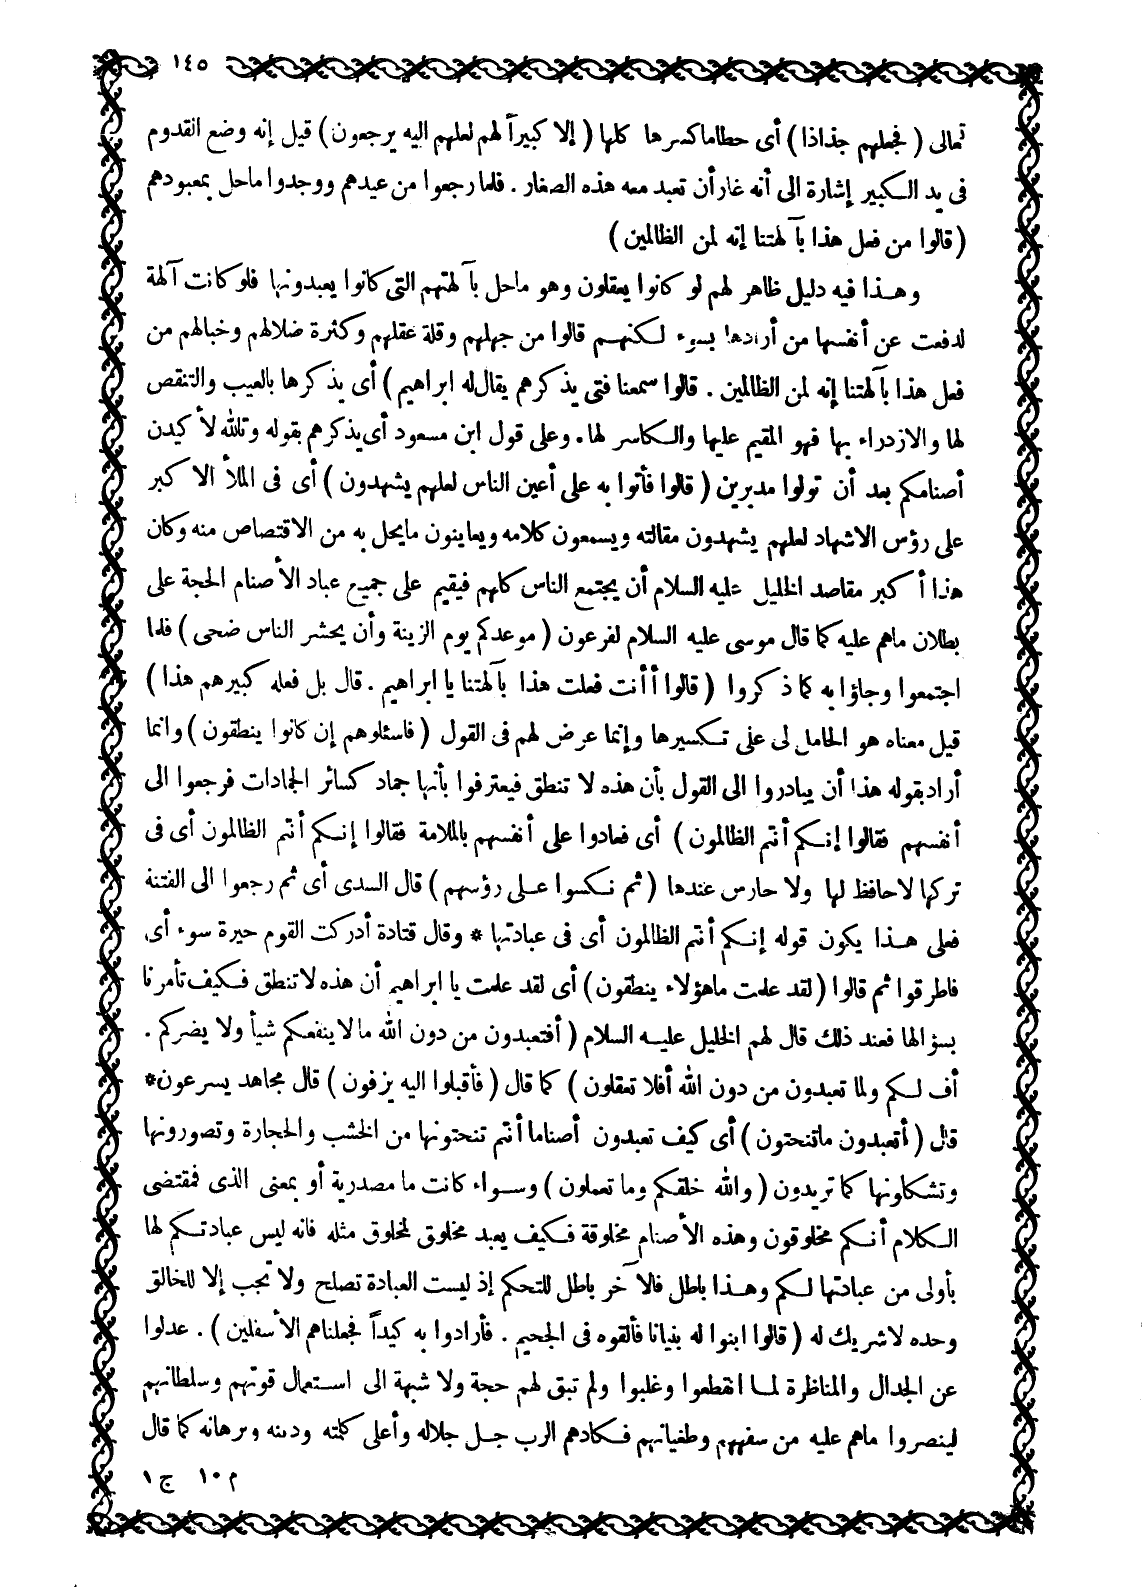 ١٤٥
تعالى ( فجعلهم جذاذا ) أى حطاما كسرها كلها ( إلا كبيراً لهم لعلهم اليه يرجعون ) قيل إنه وضع القدوم
فى يد الكبير إشارة الى أنه غار أن تعبد معه هذه الصغار . فلما رجعوا من عيدهم ووجدوا ما حل بمعبودهم
( قالوا من فعل هذا بآلهتنا إنه لمن الظالمين )
وهذا فيه دليل ظاهر لهم لو كانوا يعقلون وهو ما حل بآلهتهم التى كانوا يعبدونها فلو كانت آلهة
لدفعت عن أنفسها من أرادها بسوء لكنهم قالوا من جهلهم وقلة عقلهم وكثرة ضلالهم وخبالهم من
فعل هذا بآلهتنا إنه لمن الظالمين . قالوا سمعنا فتى يذكرهم يقال له ابراهيم ) أى يذكرها بالعيب والتنقص
لها والازدراء بها فهو المقيم عليها والكاسر لها . وعلى قول ابن مسعود أى يذكرهم بقوله وتالله لأكيدن
أصنامكم بعد أن تولوا مدبرين ( قالوا فأتوا به على أعين الناس لعلهم يشهدون ) أى فى الملأ الاكبر
على رؤس الاشهاد لعلهم يشهدون مقالته ويسمعون كلامه ويعاينون ما يحل به من الاقتصاص منه وكان
هذا أكبر مقاصد الخليل عليه السلام أن يجتمع الناس كلهم فيقيم على جميع عباد الأصنام الحجة على
بطلان ما هم عليه كما قال موسى عليه السلام لفرعون ( موعدكم يوم الزينة وأن يحشر الناس ضحى ) فلما
اجتمعوا وجاؤا به كما ذكروا ( قالوا أأنت فعلت هذا بآلهتنا يا ابراهيم . قال بل فعله كبيرهم هذا )
قيل معناه هو الحامل لى على تكسيرها وإنما عرض لهم فى القول ( فاسئلوهم إن كانوا ينطقون ) وانما
أراد بقوله هذا أن يبادروا الى القول بأن هذه لا تنطق فيعترفوا بأنها جماد كسائر الجمادات فرجعوا الى
أنفسهم فقالوا إنكم أنتم الظالمون ) أى فعادوا على أنفسهم بالملامة فقالوا إنكم أنتم الظالمون أى فى
تركها لا حافظ لها ولا حارس عندها ( ثم نكسوا على رؤسهم ) قال السدى أى ثم رجعوا الى الفتنة
فعلى هذا يكون قوله إنكم أنتم الظالمون أى فى عبادتها * وقال قتادة أدركت القوم حيرة سوء أى
فاطرقوا ثم قالوا ( لقد علمت ما هؤلاء ينطقون ) أى لقد علمت يا ابراهيم أن هذه لا تنطق فكيف تأمرنا
بسؤالها فعند ذلك قال لهم الخليل عليه السلام ( أفتعبدون من دون الله ما لا ينفعكم شيأ ولا يضركم .
أف لكم ولما تعبدون من دون الله أفلا تعقلون ) كما قال ( فأقبلوا اليه يزفون ) قال مجاهد يسرعون *
قال ( أتعبدون ما تنحتون ) أى كيف تعبدون أصناما أنتم تنحتونها من الخشب والحجارة وتصورونها
وتشكلونها كما تريدون ( والله خلقكم وما تعملون ) وسواء كانت ما مصدرية أو بمعنى الذى فمقتضى
الكلام أنكم مخلوقون وهذه الأصنام مخلوقة فكيف يعبد مخلوق لمخلوق مثله فانه ليس عبادتكم لها
بأولى من عبادتها لكم وهذا باطل فالآخر باطل للتحكم إذ ليست العبادة تصلح ولا تجب إلا للخالق
وحده لا شريك له ( قالوا ابنوا له بنيانا فألقوه فى الجحيم . فأرادوا به كيداً فجعلناهم الأسفلين ) . عدلوا
عن الجدال والمناظرة لما انقطعوا وغلبوا ولم تبق لهم حجة ولا شبهة الى استعمال قوتهم وسلطانهم
لينصروا ما هم عليه من سفههم وطغيانهم فكادهم الرب جل جلاله وأعلى كلمته ودينه وبرهانه كما قال
م ١٠ ج ١